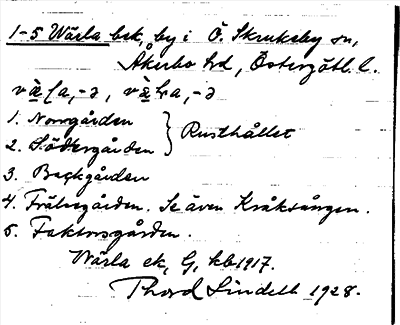 1-5 Wärla bsk, by i Ö. Skrukeby sn,
Åkerbo hd, Östergötl. l.
1. Norrgården
2. Södergården } Rusthållet
3. Backgården
4. Frälsegården. Se även Kråksången.
5. Faktorsgården.
Wärla ek, G, kb 1917.
Thord Lindell 1928.